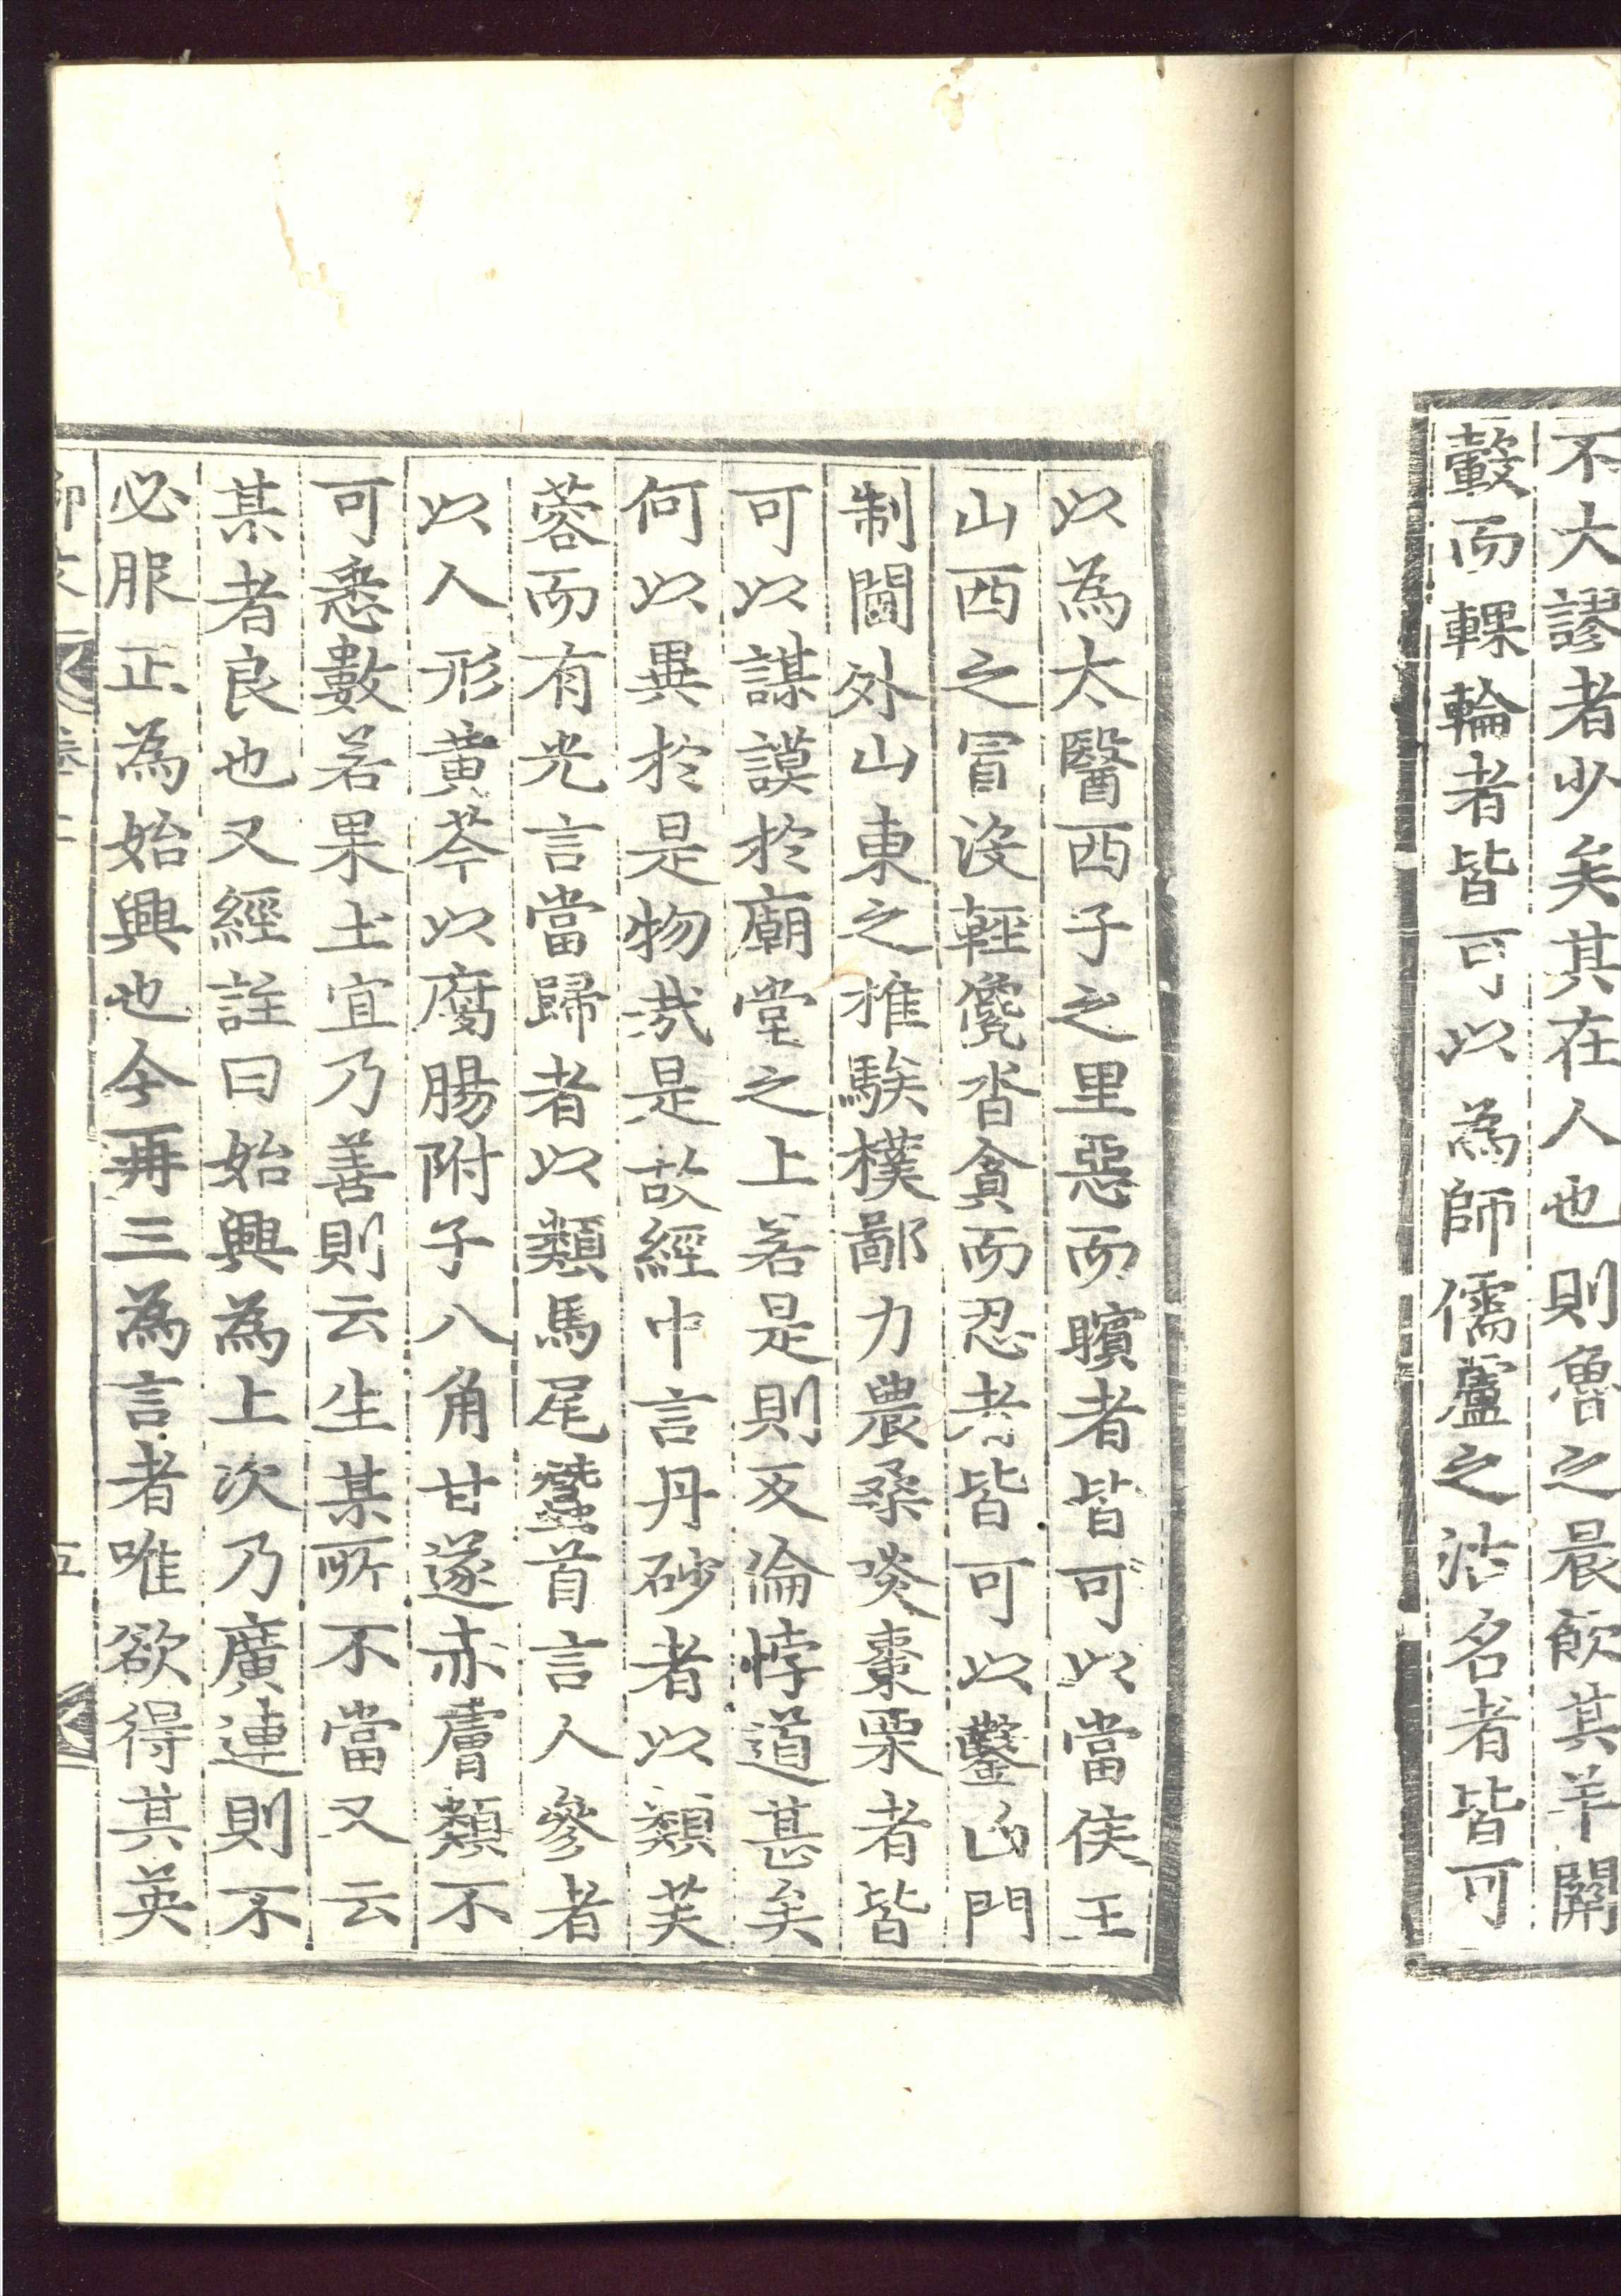 不大謬者少矣其在人也則魯之晨飲其羊關
轂而輠輪者皆可以為師儒盧之沽名者皆可
以為太醫西子之里惡而矉者皆可以當侯王
山西之冒沒輕儳沓貪而忍者皆可以鑿凶門
制閫外山東之稚騃樸鄙力農桑啖棗栗者皆
可以謀謨於廟堂之上若是則反倫悖道甚矣
何以異於是物哉是故經中言丹砂者以類芙
蓉而有光言當歸者以類馬尾蠶首言人參者
以人形黃芩以腐腸附子八角甘遂赤膚類不
可悉數若果土宜乃善則云生某所不當又云
某者良也又經註曰始興為上次乃廣連則不
必服正為始興也今再三為言者唯欲得其英